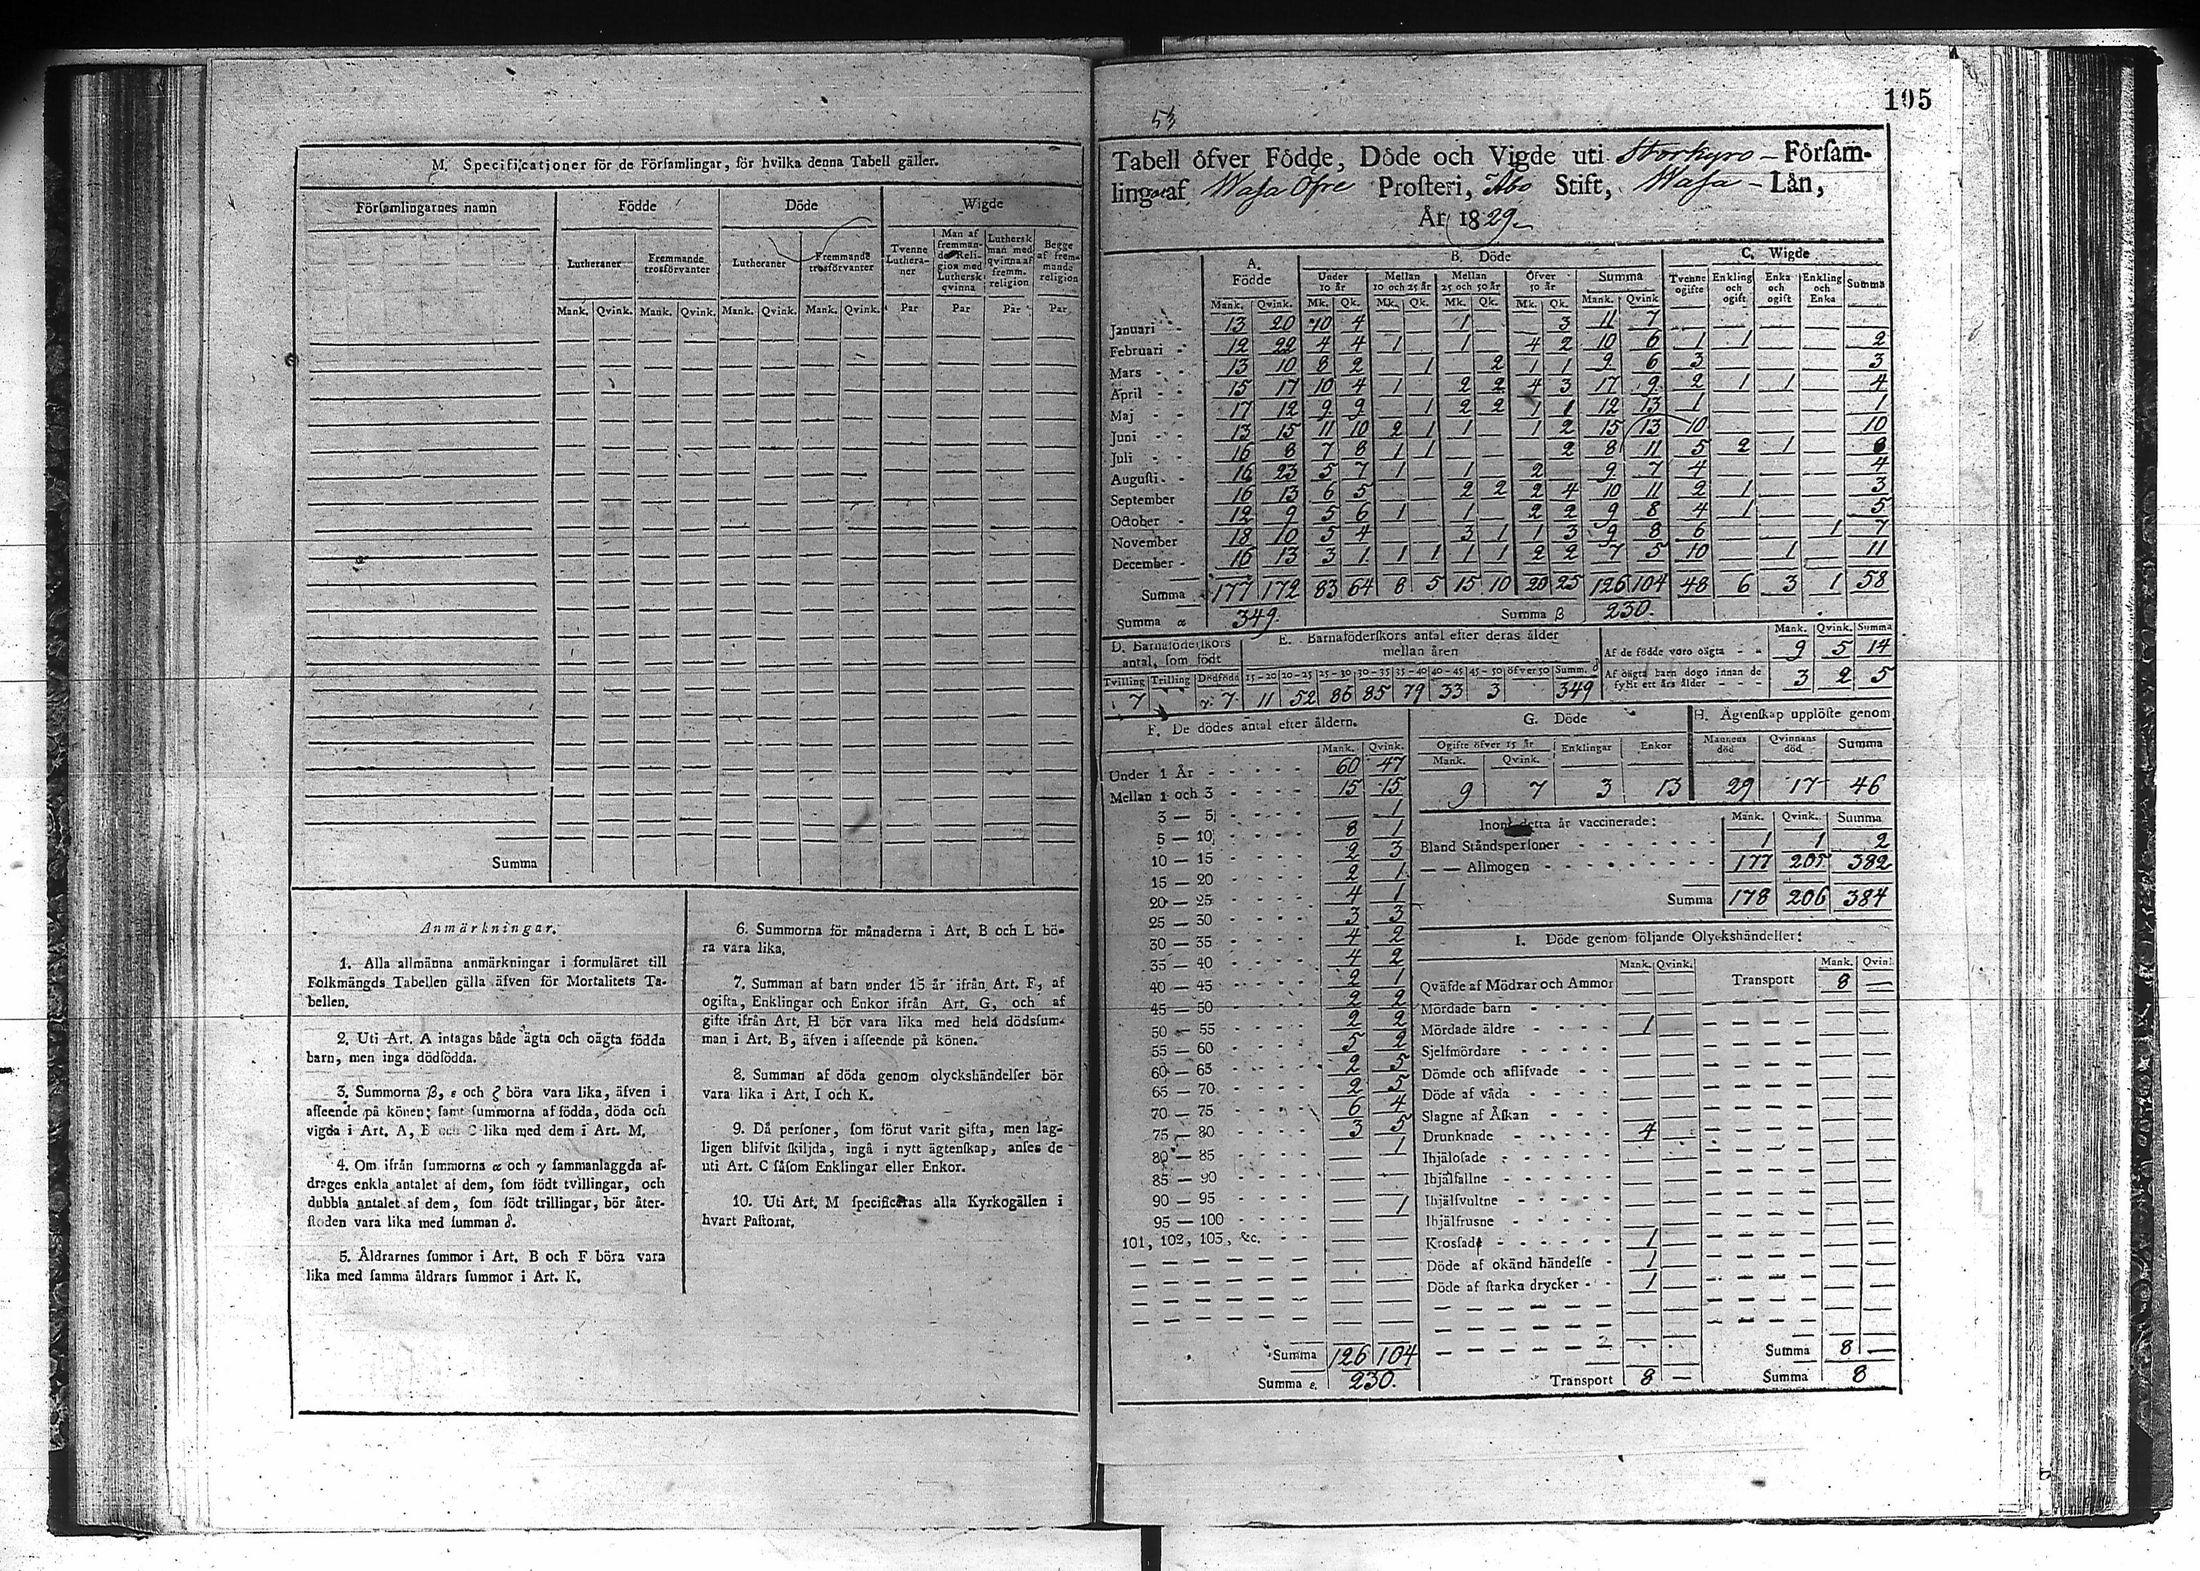 M. Specificationer för de Församlingar, för hvilka denna Tabell gäller.
Församlingarnes namn | Födde | Döde | Wigde
Lutheraner | Fremmande trosförvanter | Lutheraner | Fremmande trosförvanter | Tvenne Lutheraner | Man af fremmande Religion med Luthersk qvinna | Luthersk man med qvinna af fremm. religion | Begge af fremmande religion
Mank. Qvink. Mank. Qvink. Mank. Qvink. Mank. Qvink. Par Par Par Par
Summa
Anmärkningar.
1. Alla allmänna anmärkningar i formuläret till
Folkmängds Tabellen gälla äfven för Mortalitets Ta-
bellen.
2. Uti Art. A intagas både ägta och oägta födda
barn, men inga dödfödda.
3. Summorna β, ε och ζ böra vara lika, äfven i
afseende på könen; samt summorna af födda, döda och
vigda i Art. A, B och C lika med dem i Art. M.
4. Om ifrån summorna α och γ sammanlaggda af-
drages enkla antalet af dem, som födt tvillingar, och
dubbla antalet af dem, som födt trillingar, bör åter-
stoden vara lika med summan δ.
5. Åldrarnes summor i Art. B och F böra vara
lika med samma åldrars summor i Art. K.
6. Summorna för månaderna i Art. B och L bö-
ra vara lika.
7. Summan af barn under 15 år ifrån Art. F, af
ogifta, Enklingar och Enkor ifrån Art. G, och af
gifte ifrån Art. H bör vara lika med hela dödssum-
man i Art. B, äfven i afseende på könen.
8. Summan af döda genom olyckshändelser bör
vara lika i Art. I och K.
9. Då personer, som förut varit gifta, men lag-
ligen blifvit skiljda, ingå i nytt ägtenskap, anses de
uti Art. C såsom Enklingar eller Enkor.
10. Uti Art. M specificeras alla Kyrkogällen i
hvart Pastorat.
105
53
Tabell öfver Födde, Döde och Vigde uti Storkyro Försam-
ling af Wasa Öfre Prosteri, Åbo Stift, Wasa Län,
År 1829
A. Födde | B. Döde | C. Wigde
Under 10 år | Mellan 10 och 25 år | Mellan 25 och 50 år | Öfver 50 år | Summa | Tvenne ogifte | Enkling och ogift | Enka och ogift | Enkling och Enka | Summa
Mank. Qvink. Mk. Qk. Mk. Qk. Mk. Qk. Mk. Qk. Mank. Qvink
Januari 13 20 10 4 1 3 11 7
Februari 12 22 4 4 1 1 4 2 10 6 1 1 2
Mars 13 10 8 2 1 2 1 1 9 6 3 3
April 15 17 10 4 1 2 2 4 3 17 9 2 1 1 4
Maj 17 12 9 9 1 2 2 1 1 12 13 1 1
Juni 13 15 11 10 2 1 1 1 2 15 13 10 10
Juli 16 8 7 8 1 1 2 8 11 5 2 1 8
Augusti 16 23 5 7 1 1 2 9 7 4 4
September 16 13 6 5 2 2 2 4 10 11 2 1 3
October 12 9 5 6 1 1 2 2 9 8 4 1 5
November 18 10 5 4 3 1 1 3 9 8 6 1 7
December 16 13 3 1 1 1 1 1 2 2 7 5 10 1 11
Summa 177 172 83 64 8 5 15 10 20 25 126 104 48 6 3 1 58
Summa α 349. Summa β 230.
D. Barnaföderskors antal, som födt
Tvilling Trilling Dödfödd
7 γ. 7
E. Barnaföderskors antal efter deras ålder mellan åren
15-20 20-25 25-30 30-35 35-40 40-45 45-50 öfver 50 Summ. δ
11 52 86 85 79 33 3 349
Mank. Qvink. Summa
Af de födde voro oägta 9 5 14
Af oägta barn dogo innan de fyllt ett års ålder 3 2 5
F. De dödes antal efter åldern.
Mank. Qvink.
Under 1 År 60 47
Mellan 1 och 3 15 15
3 — 5 1
5 — 10 8 1
10 — 15 2 3
15 — 20 2 1
20 — 25 4 1
25 — 30 3 3
30 — 35 4 2
35 — 40 4 2
40 — 45 2 1
45 — 50 2 2
50 — 55 2 2
55 — 60 5 2
60 — 65 2 5
65 — 70 2 5
70 — 75 6 4
75 — 80 3 5
80 — 85 1
85 — 90
90 — 95 1
95 — 100
101, 102, 103, &c.
Summa 126 104
Summa ε. 230.
G. Döde
Ogifte öfver 15 år | Enklingar | Enkor
Mank. Qvink.
9 7 3 13
H. Ägtenskap upplöste genom
Mannens död | Qvinnans död | Summa
29 17 46
Inom detta år vaccinerade: Mank. Qvink. Summa
Bland Ståndspersoner 1 1 2
— — Allmogen 177 205 382
Summa 178 206 384
I. Döde genom följande Olyckshändelser:
Mank. Qvink. Mank. Qvink.
Qväfde af Mödrar och Ammor Transport 8 —
Mördade barn
Mördade äldre 1
Sjelfmördare
Dömde och aflifvade
Döde af våda
Slagne af Åskan
Drunknade 4
Ihjälosade
Ihjälfallne
Ihjälsvultne
Ihjälfrusne
Krossade 1
Döde af okänd händelse 1
Döde af starka drycker 1
Summa 8 —
Transport 8 — Summa 8